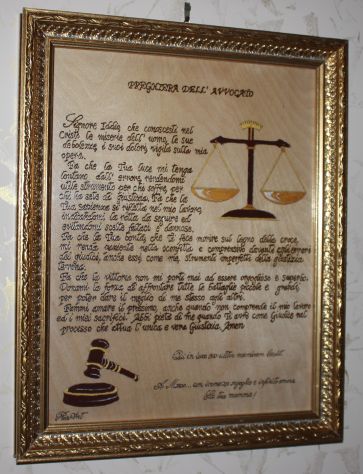 PREGHIERA DELL' AVVOCATO
Signore Iddio, che conoscesti nel
Cristo le miserie dell' uomo, le sue
debolezze, i suoi dolori, vigila sulla mia
opera.
Fa che la Tua luce mi tenga
lontano dall' errore, rendendomi
utile strumento per chi soffre, per
chi ha sete di Giustizia. Fa che la
Tua Sapienza si rifletta nel mio lavoro,
indicandomi la retta da seguire ed
evitandomi scelte fallaci e dannose.
Fa che la Tua bontà, che Ti fece morire sul legno della croce,
mi renda paziente nella sconfitta e comprensivo davanti agli errori
dei giudici, anche essi, come me, strumenti imperfetti della giustizia
terrena.
Fa che la vittoria non mi porti mai ad essere orgoglioso e superbo.
Donami la forza di affrontare tutte le battaglie piccole e grandi,
per poter dare il meglio di me stesso agli altri.
Fammi amare il prossimo, anche quando non comprende il mio lavoro
ed i miei sacrifici. Abbi pietà di me quando Ti avrò come Giudice nel
processo che attua l' unica e vera Giustizia. Amen
Qui in iure suo utitur neminem laedit
A con immenso orgoglio e infinito amore
la tua mamma!